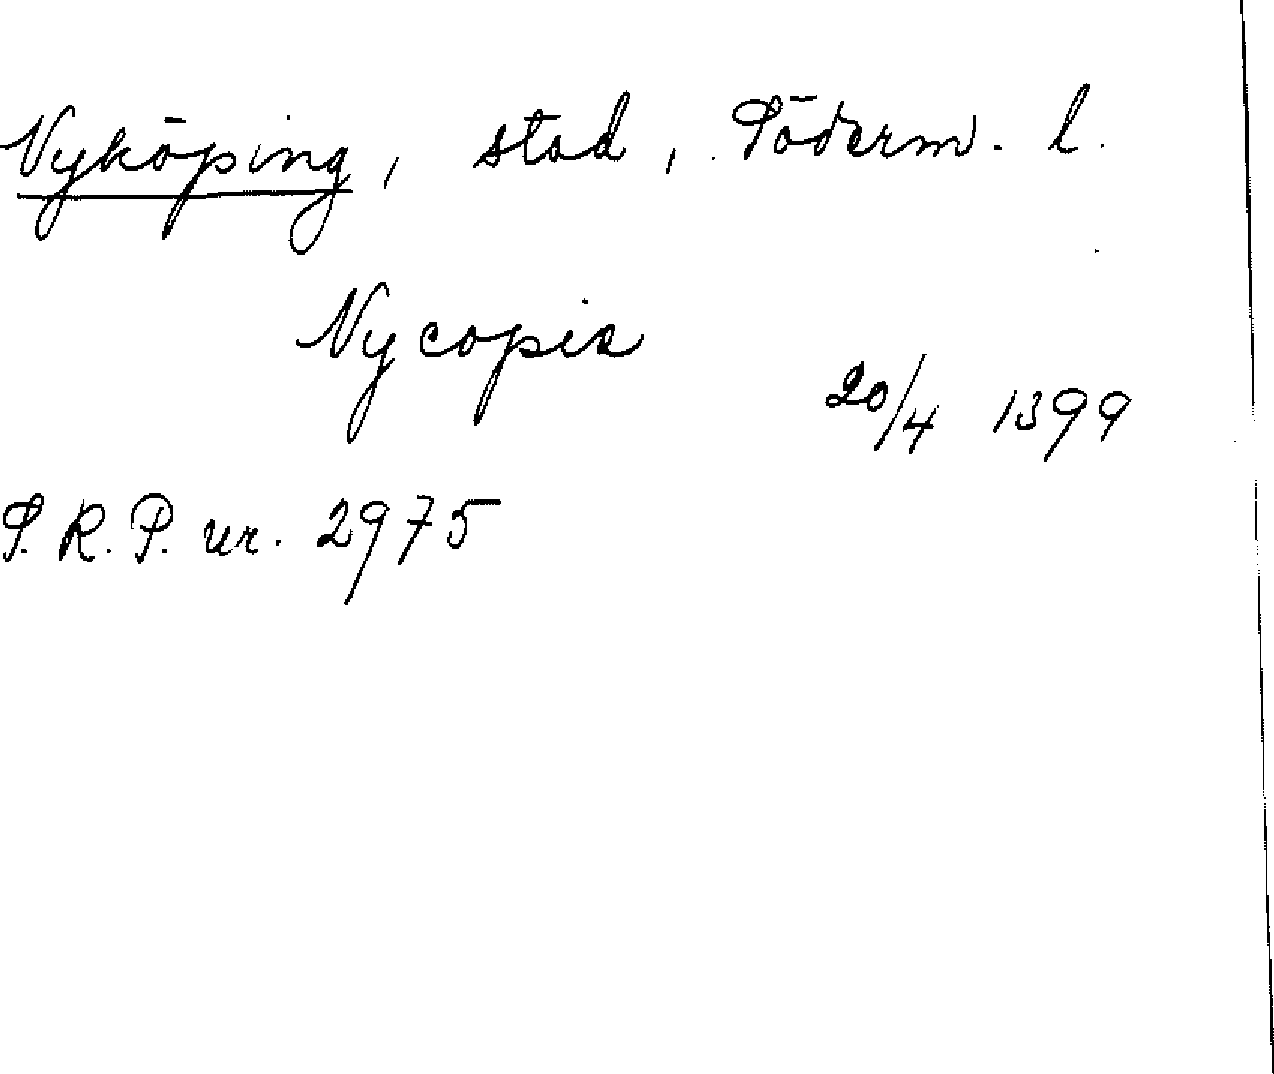 Nyköping, stad, Söderm. l.
Nycopia
20/4 1399
S. R. P. nr. 2975